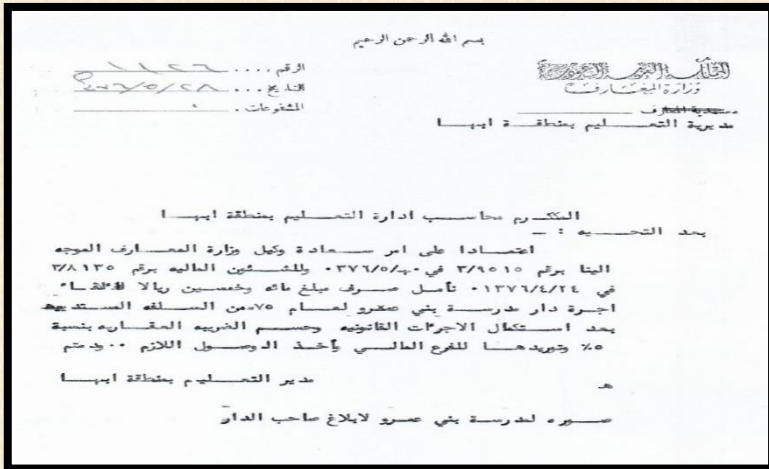 بسم الله الرحمن الرحيم
المملكة العربية السعودية
وزارة المعارف
مديرية التعـــليم بمنطقــة ابهــا
الرقم .... ١١٢٦
التاريخ ... ٣٧٦/٥/٢٨
المشفوعات .
المكــرم محاســب ادارة التعــليم بمنطقة ابهــا
بعد التحــيه : ــ
اعتمــادا على امر ســعادة وكيل وزارة المعــارف الموجه
الينا برقم ٣/٩٥١٥ في /٣٧٦/٥٠ وللشــئون الماليه برقم ٣/٨١٣٥
في ١٣٧٦/٤/٢٤٠ نأمــل صــرف مبلغ مائه وخمســين ريالا
اجرة دار مدرســة بني عمرو لعــام ٧٥من السـلفه الستديمه
بعد استكمال الاجرءات القانونيه وحسـم الضريبه العقـاريه بنسبة
٥٪ وتوريدهــا للفرع المالــي وأخــذ الوصــول اللازم ٠٠ودمتم
مدير التعــليم بمنطقة ابهــا
هـ
صــوره لمدرســة بني عمرو لابلاغ صاحب الدار